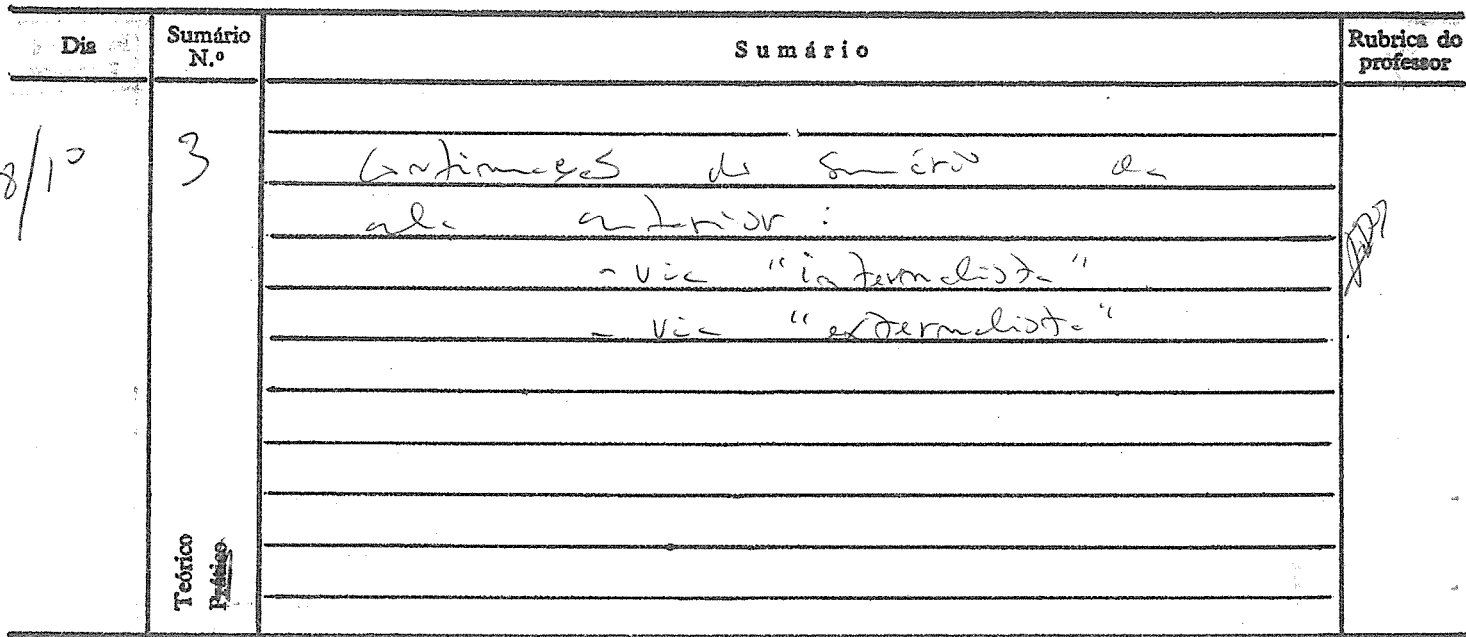 Dia
Sumário N.º
Sumário
Rubrica do professor
8/10
3
Continuação do Sumário da
aula anterior :
- via "internalista"
- via "externalista"
Teórico
Prático